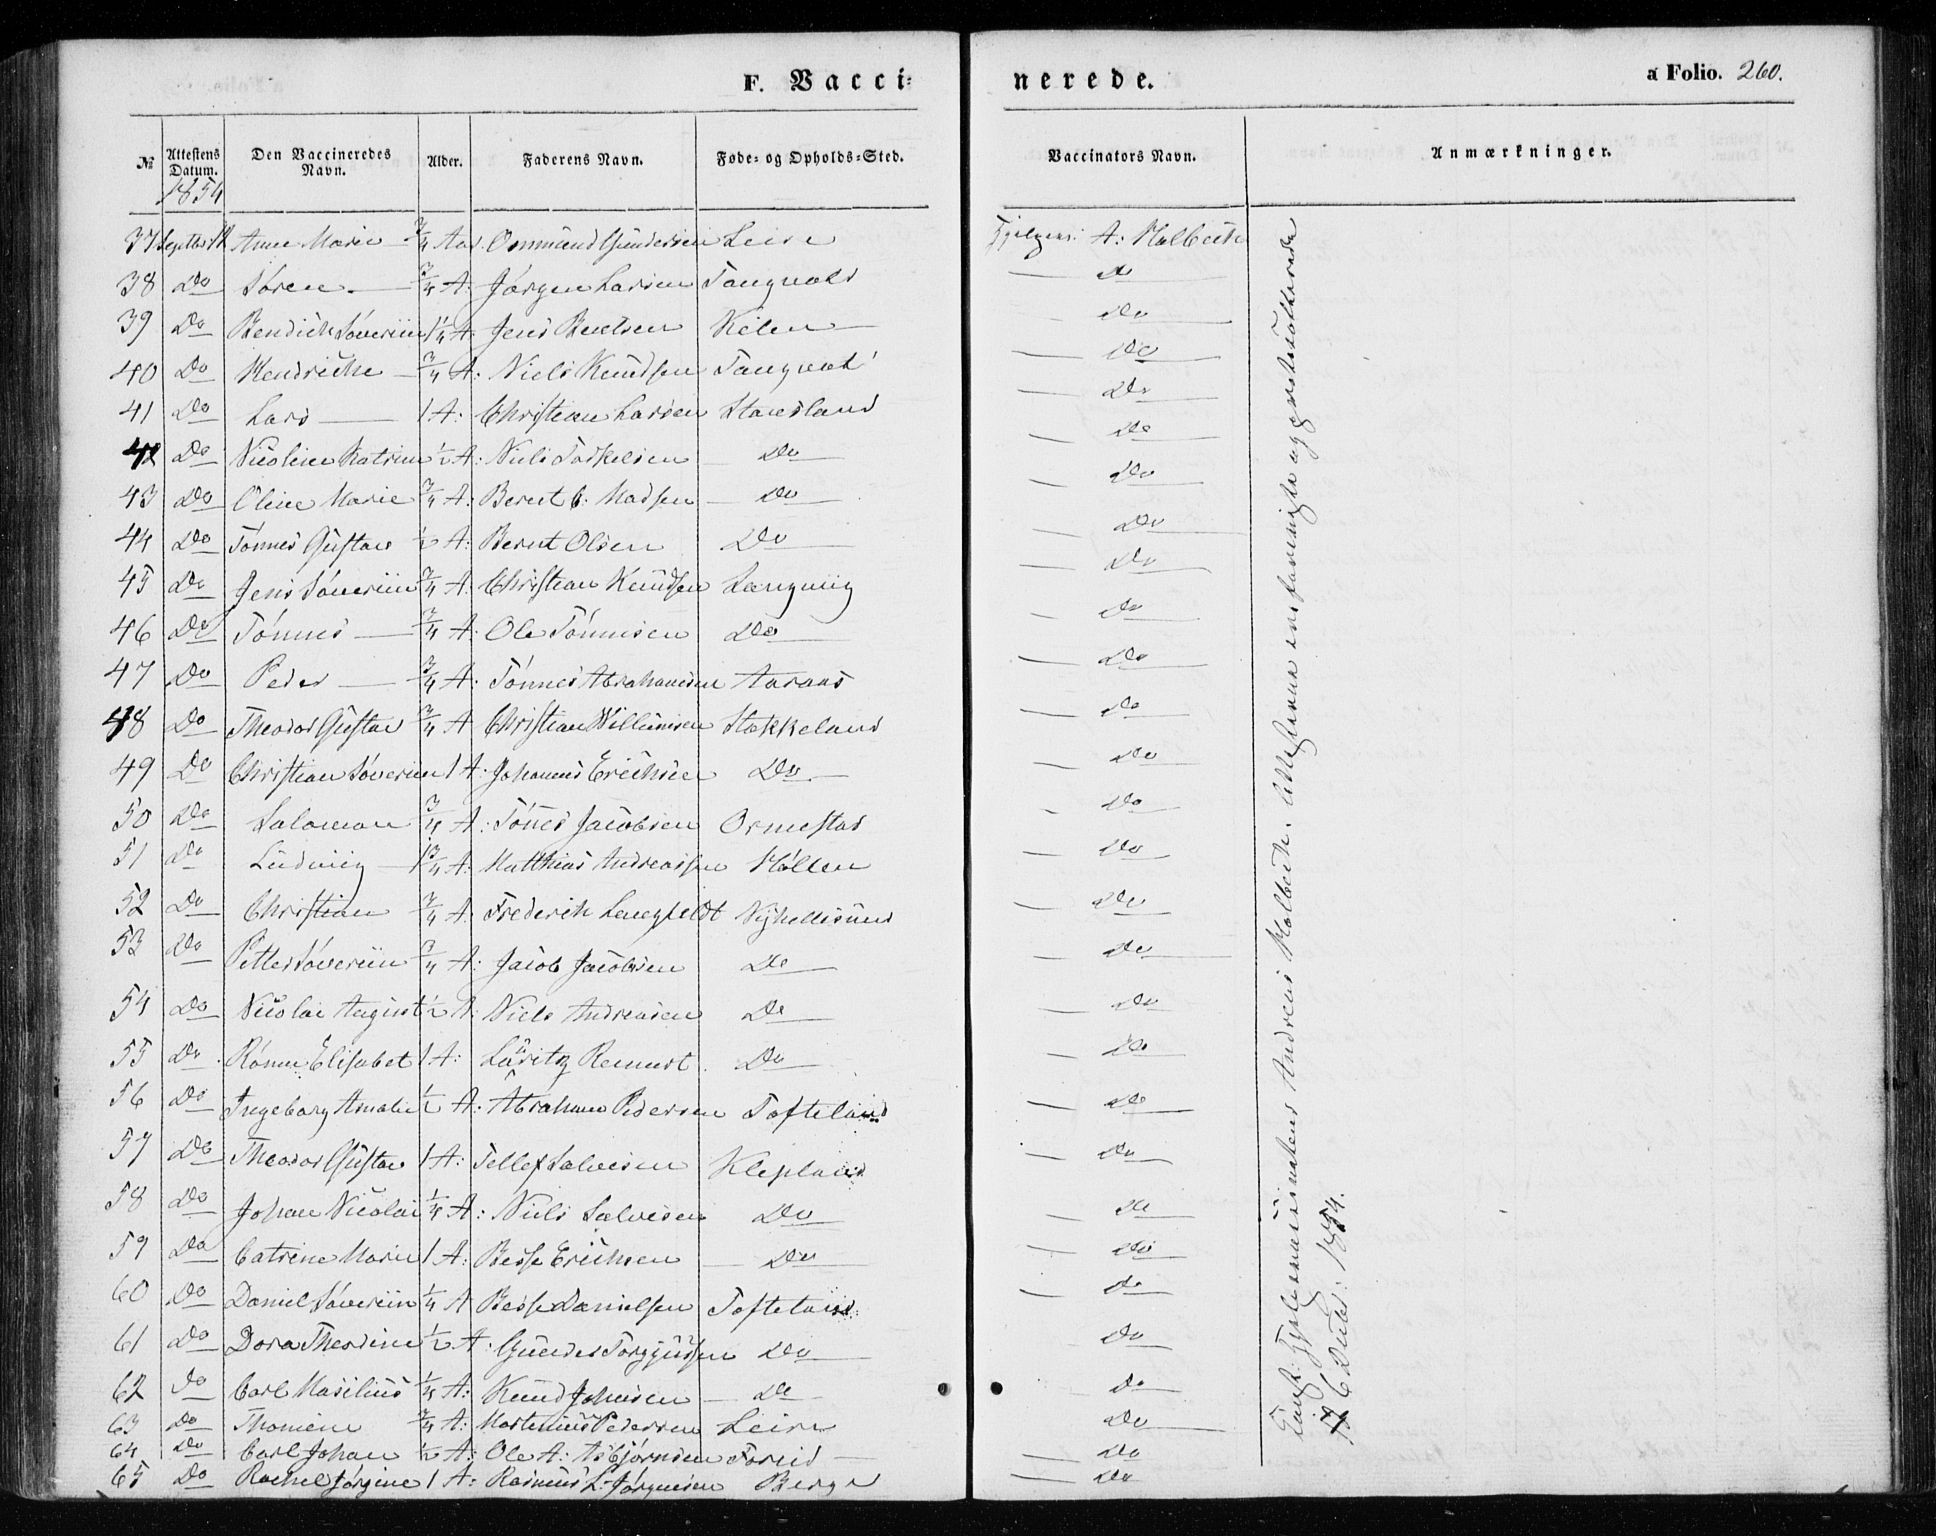 F. Vacci-
nerede.
a Folio. 260.
№ Attestens Datum. Den Vaccineredes Navn. Alder. Faderens Navn. Føde- og Opholds-Sted. Vaccinators Navn. Anmærkninger.
1854
37 Anne Marie 3/4 Aar Ommund Gundersen Leire A: Holbeck
38 Do Søren 3/4 A: Jørgen Larsen Tangvald Do
39 Do Bendich Søveriin 1 1/4 A: Jens Bentsen Kilen Do
40 Do Hendrikke 3/4 A: Niels Knudsen Tangvald Do
41 Do Lars 1 A: Christian Larsen Stausland Do
42 Do Nicoline Katrine 1/2 A: Niels Torkelsen Do Do
43 Do Oline Marie 3/4 A: Berent C. Madsen Do Do
44 Do Tønnes Gustav 1/2 A: Bernt Olsen Do Do
45 Do Jens Søveriin 3/4 A: Christian Knudsen Langvig Do
46 Do Tønnes 3/4 A: Ole Tønnesen Do Do
47 Do Peder 3/4 A: Tønnes Abrahamsen Aaraas Do
48 Do Theodor Gustav 3/4 A Christian Willumsen Stokkeland Do
49 Do Christian Søveriin 1 A: Johannes Erichsen Do Do
50 Do Salomon 3/4 A: Tønnes Jacobsen Ormestad Do
51 Do Ludvig 1 3/4 A: Matthias Andreassen Møllen Do
52 Do Christian 3/4 A: Frederik Langfeldt Nyhellesund Do
53 Do Petter Søveriin 3/4 A: Jacob Jacobsen Do Do
54 Do Nicolai August 1/2 A: Niels Andreasen Do Do
55 Do Elisabet 1 A: Lauritz Do Do
56 Do Ingeborg Amalie 1/2 A: Abraham Pedersen Tofteland Do
57 Do Theodor Gustav 1 A: Tellef Salvesen Klepland Do
58 Do Johan Nicolai 1/4 A: Niels Salvesen Do Do
59 Do Catrine Marie 1 A: Besse Erichsen Do Do
60 Do Daniel Søveriin 1/4 A Besse Danielsen Tofteland Do
61 Do Dora Theodine 1/2 A: Gunder Torgjusen Do Do
62 Do Carl 1/4 A: Knud Johnsen Do Do
63 Do Thomine 3/4 A: Mortenius Pedersen Leire Do
64 Do Carl Johan 1/2 A: Ole A: Asbjørnsen Do
65 Do Rachel Jørgine 1 A: Rasmus L: Jørgensen Berge Do
Andreas Holbeck.
1854.